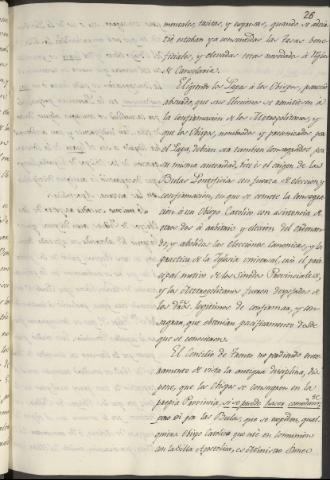 26
mentales, tacitas, y expresas, quando se
estaban ya consumidas las Penas bene-
ficiales, y elevadas otras
de Cancelaria.
Eligiendo los Papa á los Obispos, pareció
absurdo, que sus elecciones se remitiesen á
la confirmacion de los Metropolitanos, y
que los Obispos, nombrados y presentados por
el Papa, debian ser tambien consagrados por
su misma autoridad, tuvo el origen de las
Bulas Pontificias con fuerza de eleccion, y
confirmacion, en que se comete la consagra-
cion á un Obispo Catolico con asistencia de
otros dos á arbitrio y eleccion del
do, y abolidas las elecciones Canonicas, y la
practica de la Iglesia universal, casi el prin-
cipal motivo de los Sinodos Provinciales,
y los Metropolitanos fueron despojados de
los dros. legitimos de confirmar, y con-
sagrar, que obtenian pacificamente desde
que se conocieron.
El Concilio de Trento no perdiendo ente-
ramente de vista la antigua disciplina, dis-
pone, que los Obispos se consagren en la
propia Provincia, si se puede hacer comodamte.
pero ya por las Bulas, que se expiden, qual-
quiera Obispo Catolico que esté en comunion
con la Silla Apostolica,